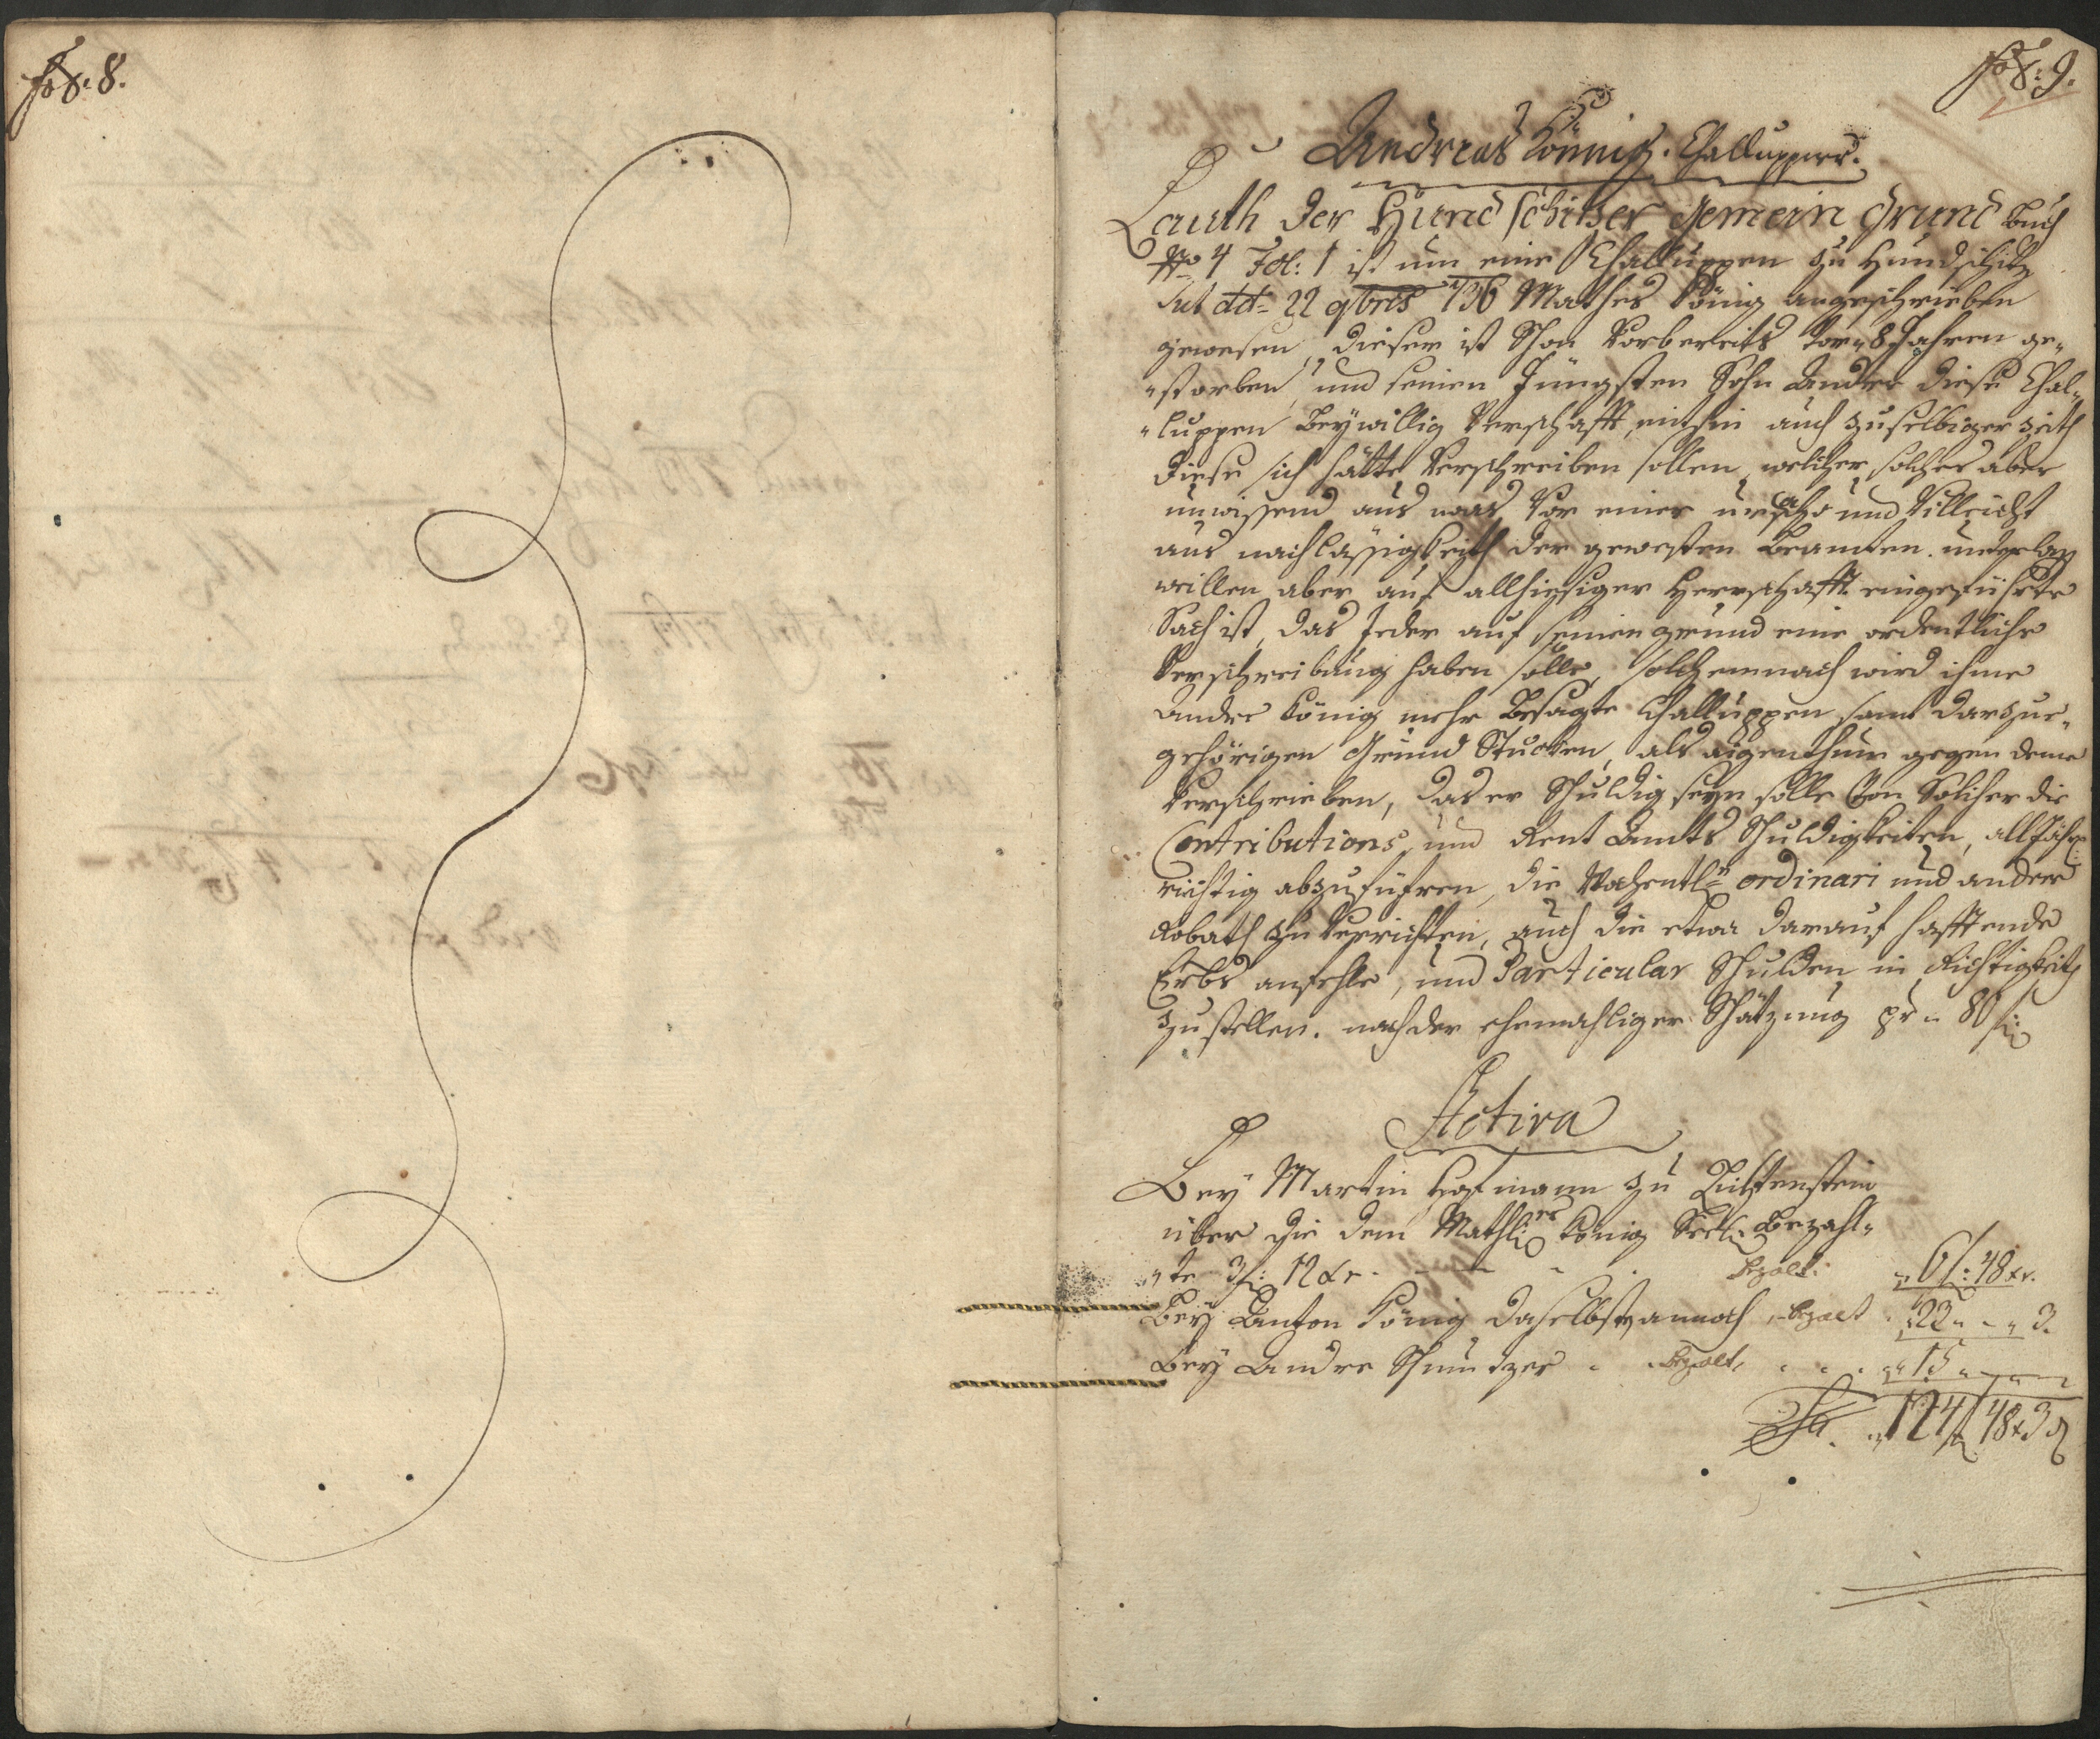 fol: 8.
fol: 9.
Andreas König. Challupper.
Lauth der Hundschitzer Gemein Grund Buch
No 4 Fol: 1 ist um eine Challuppen zu Hundschitz
sub dtto 22 9bris 1736 Mathes König angeschrieben
gewesen, dieser ist Schon Vorbereits vor 8 Jahren ge„
„storben, und seinen Jüngsten Sohn Andre diese Chal„
„luppen Beywillig Verschafft, mithin auch zu selbiger zeith
diese sich hätte Verschreiben sollen, welcher solches aber
unwissend aus was Vor einer ursach und Villeicht
aus nachlässigkeith der gewesten Beamten
willen aber auf allhiesiger Herrschafft eingeführte
Sach ist, das Jeder auf seinen grund eine ordentliche
Verschreibung haben solle, solchemnach wird ihme
Andre König mehr Besagte Challuppen samt darzue„
gehörigen Grund Stucken, als aigenthum gegen deme
Verschrieben, das er Schuldig seyn solle Von Solcher die
Contributions und Rent Ambts Schuldigkeiten, all Jährl:
richtig abzuführen, die Wochentl: ordinari und andere
Robath zu Verrichten, auch die etwa darauf hafftende
Erbs anfehle, und Particular Schulden in Richtigkeith
zu stellen. nach der ehemahligen Schätzung pr „ 80 f:
Activa
Bey Martin Hofmann zu Lichtenstein
über die dem Mathes König Seel: Bezahl„
„te 3 f: 12 xr. bezalt. „ 6 f: 48 xr.
Bey Anton König daselbst annoch bezalt „ 23 „ - „ 3.
Bey Andre Schmutzer bezalt „ 15 „ - „ -
Sa. „ 124 f 48 x 3 d